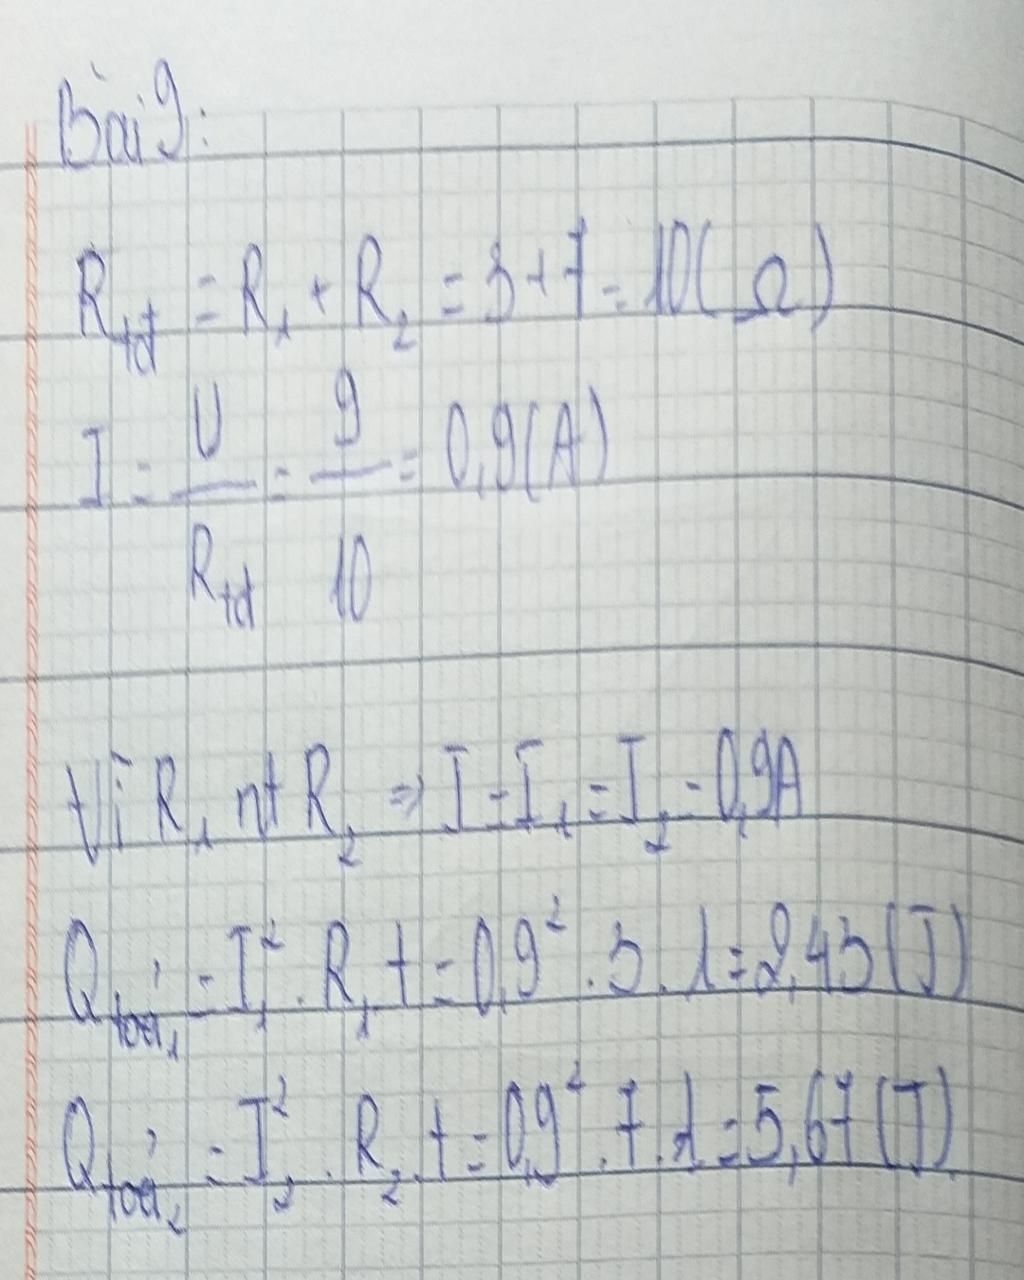 Bài 9:
Rtđ = R1 + R2 = 3 + 7 = 10 (Ω)
I = U/Rtđ = 9/10 = 0,9 (A)
Vì R1 nt R2 => I = I1 = I2 = 0,9A
Qtỏa1 = I1². R1 t = 0,9² . 3 . 1 = 2,43 (J)
Qtỏa2 = I2² . R2 . t = 0,9² . 7 . 1 = 5,67 (J)